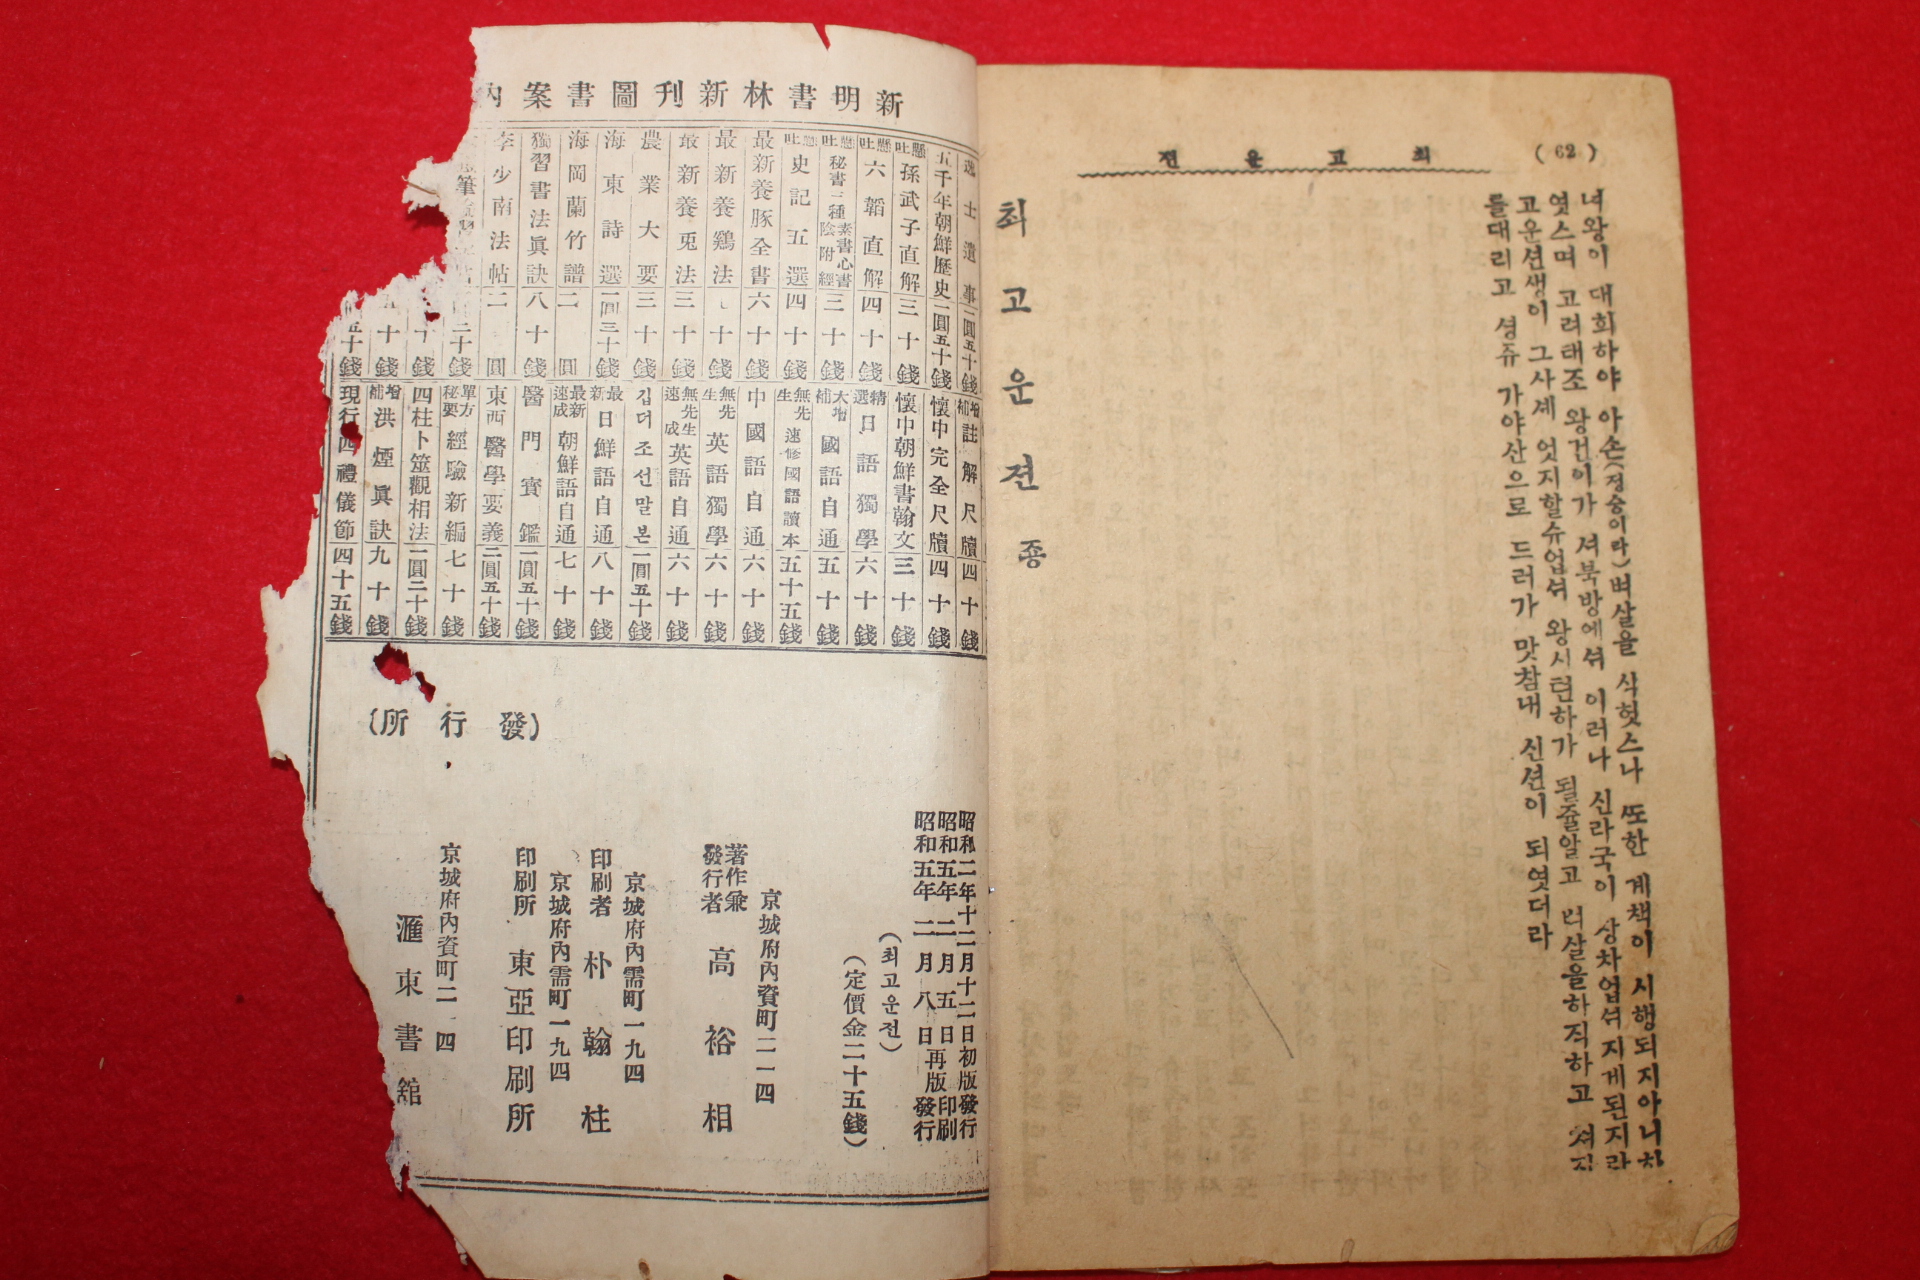 (62)
최고운젼
녀왕이 대희하야 아손(정승이라)벼살을 식헛스나 ᄯᅩ한 계책이 시행되지아니하
엿스며 고려태조 왕건이가 셔북방에셔 이러나 신라국이 상차업셔 지게된지라
고운션생이 그사셰 엇지할슈업셔 왕시런하가 될쥴알고 벼살을하직하고 쳐자
를대리고 셩쥬 가야산으로 드러가 맛참내 신션이 되엿더라
최고운젼 죵
新明書林新刊圖書案內
逸士遺事 二圓五十錢
五千年朝鮮歷史 一圓五十錢
懸吐 孫武子直解 三十錢
懸吐 六韜直解 四十錢
懸吐 秘書三種 素書心書陰附經 三十錢
懸吐 史記五選 四十錢
最新養豚全書 六十錢
最新養鷄法 十錢
最新養兎法 三十錢
農業大要 三十錢
海東詩選 一圓三十錢
海岡蘭竹譜 二圓
獨習書法眞訣 八十錢
李少南法帖 二圓
二十錢
十錢
十錢
五十錢
增補 註解尺牘 四十錢
懷中完全尺牘 四十錢
懷中朝鮮書翰文 三十錢
精選 日語獨學 六十錢
大增補 國語自通 五十錢
無先生 速修國語讀本 五十五錢
中國語自通 六十錢
無先生 英語獨學 六十錢
無先生速成 英語自通 六十錢
깁더조선말본 一圓五十錢
最新 日鮮語自通 八十錢
最新速成 朝鮮語自通 七十錢
醫門寶鑑 一圓五十錢
東西醫學要義 二圓五十錢
單方秘要 經驗新編 七十錢
四柱卜筮觀相法 一圓二十錢
增補 洪煙眞訣 九十錢
現行四禮儀節 四十五錢
昭和二年十二月十二日初版發行
昭和五年二月五日再版印刷
昭和五年二月八日再版發行
(최고운전)
(定價金二十五錢)
京城府內資町二一四
著作兼發行者 高裕相
京城府內需町一九四
印刷者 朴翰柱
京城府內需町一九四
印刷所 東亞印刷所
(發行所)
京城府內資町二一四
滙東書舘